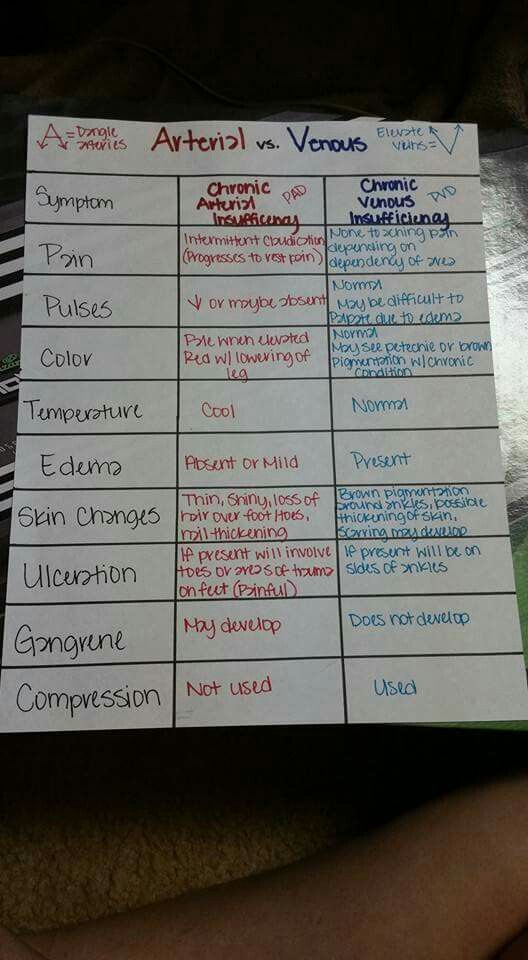 A = Dangle arteries
Arterial vs. Venous
Elevate veins = V
Symptom
Chronic
Arterial
Insufficency
PAD
Chronic
Venous
Insufficiency
PVD
Pain
Intermittent Claudication
(Progresses to rest pain)
None to aching pain
depending on
dependency of area
Pulses
↓ or maybe absent
Normal
May be difficult to
Palpate due to edema
Color
Pale when elevated
Red w/ lowering of
leg
Normal
May see petechie or brown
pigmentation w/ chronic
condition
Temperature
Cool
Normal
Edema
Absent or Mild
Present
Skin Changes
Thin, Shiny, loss of
hair over foot/toes,
nail thickening
Brown pigmentation
around ankles, possible
thickening of skin,
Scarring may develop
Ulceration
If present will involve
toes or areas of trauma
on feet (Painful)
If present will be on
sides of ankles
Gangrene
May develop
Does not develop
Compression
Not used
Used